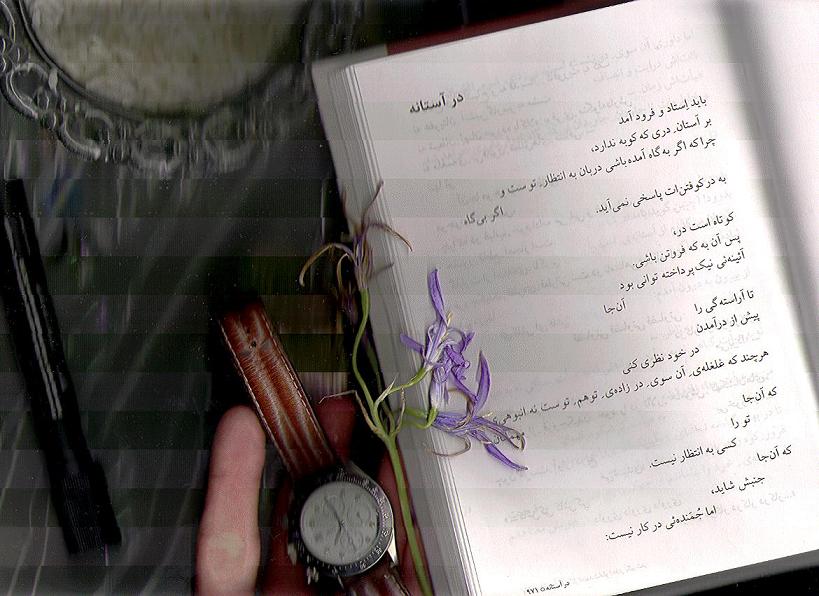 در آستانه
باید اِستاد و فرود آمد
بر آستانِ دری که کوبه ندارد،
چرا که اگر به‌گاه آمده‌باشی دربان به انتظارِ توست و
اگر بی‌گاه
به درکوفتن‌ات پاسخی نمی‌آید.
کوتاه است در،
پس آن به که فروتن باشی.
آئینه‌ئی نیک‌پرداخته توانی بود
آن‌جا
تا آراسته‌گی را
پیش از درآمدن
در خود نظری کنی
هرچند که غلغله‌ی آن سوی در زاده‌ی توهمِ توست نه انبوهیِ
که آن‌جا
تو را
کسی به انتظار نیست.
که آن‌جا
جنبش شاید،
اما جُمَنده‌ئی در کار نیست:
در آستانه ۹۷۱